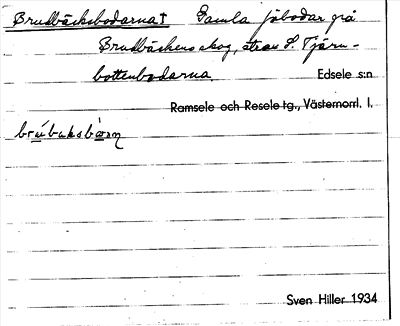 Brudbäcksbodarna† Gamla fäbodar på
Brudbäckens skog, strax S. Tjärn-
bottenbodarna. Edsele s:n
Ramsele och Resele tg., Västernorrl. l.
Sven Hiller 1934